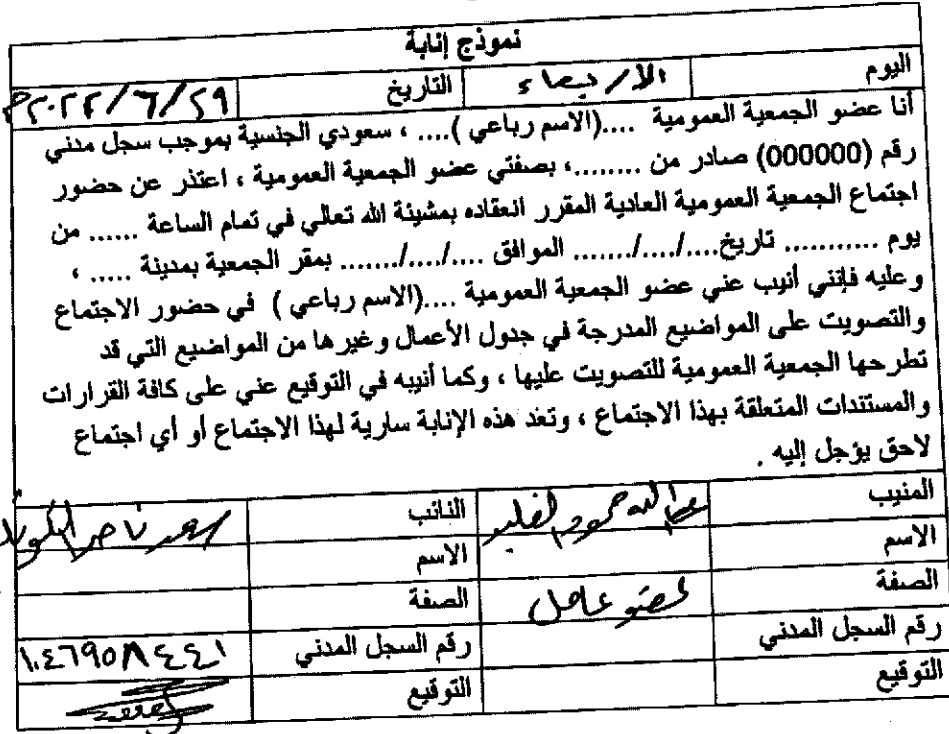 نموذج إنابة
اليوم الأربعاء التاريخ ٢٠٢٢/٦/٢٩م
أنا عضو الجمعية العمومية ....(الاسم رباعي ).... ، سعودي الجنسية بموجب سجل مدني
رقم (000000) صادر من ........، بصفتي عضو الجمعية العمومية ، اعتذر عن حضور
اجتماع الجمعية العمومية العادية المقرر انعقاده بمشيئة الله تعالي في تمام الساعة ...... من
يوم ........... تاريخ..../..../....... الموافق ..../..../....... بمقر الجمعية بمدينة ..... ،
وعليه فإنني أنيب عني عضو الجمعية العمومية ....(الاسم رباعي ) في حضور الاجتماع
والتصويت على المواضيع المدرجة في جدول الأعمال وغيرها من المواضيع التي قد
تطرحها الجمعية العمومية للتصويت عليها ، وكما أنيبه في التوقيع عني على كافة القرارات
والمستندات المتعلقة بهذا الاجتماع ، وتعد هذه الإنابة سارية لهذا الاجتماع أو أي اجتماع
لاحق يؤجل إليه .
المنيب عبدالله حمود النائب سعد ناصر
الاسم الاسم
الصفة عضو عامل الصفة
رقم السجل المدني رقم السجل المدني ١٠٤٦٩٥٨٤٤١
التوقيع التوقيع